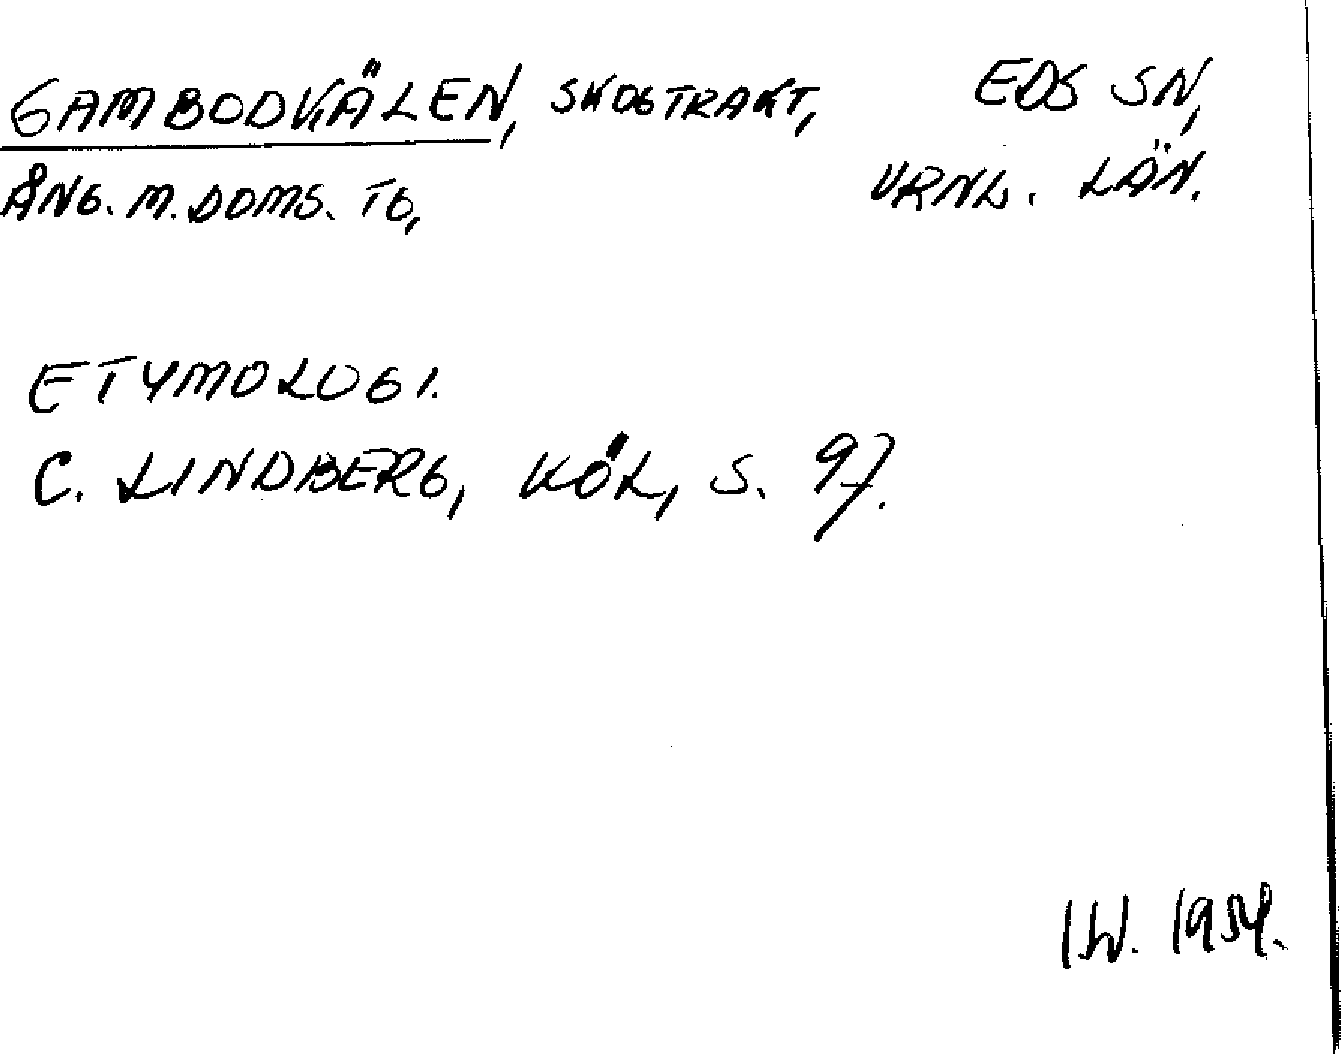 GAMBODKÄLEN, SKOGTRAKT, EDS SN,
ÅNG. M. DOMS. TG, VRNL. LÄN.
ETYMOLOGI.
C. LINDBERG, KÖL, S. 97.
I.W. 1954.